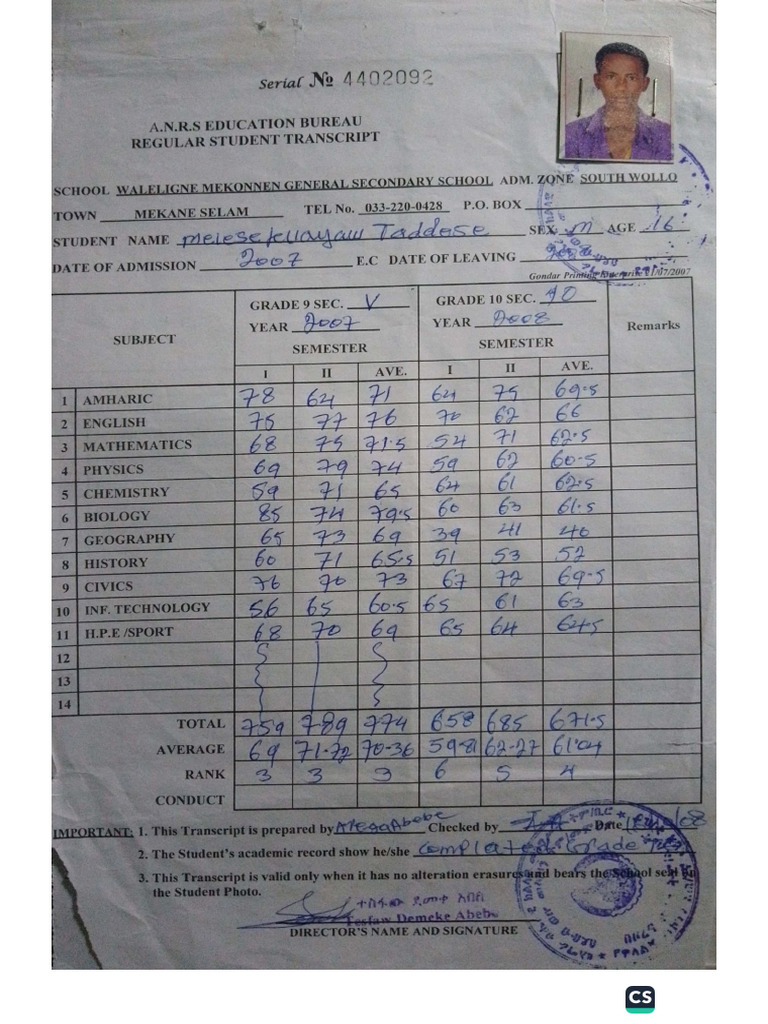 Serial № 4402092
A.N.R.S EDUCATION BUREAU
REGULAR STUDENT TRANSCRIPT
SCHOOL WALELIGNE MEKONNEN GENERAL SECONDARY SCHOOL ADM. ZONE SOUTH WOLLO
TOWN MEKANE SELAM TEL No. 033-220-0428 P.O. BOX
STUDENT NAME Taddese SEX M AGE 16
DATE OF ADMISSION 2007 E.C DATE OF LEAVING
Gondar Printing Enterprise 21/07/2007
SUBJECT GRADE 9 SEC. V GRADE 10 SEC. 10 Remarks
YEAR 2007 YEAR 2008
SEMESTER SEMESTER
I II AVE. I II AVE.
1 AMHARIC 78 64 71 64 75 69.5
2 ENGLISH 75 77 76 70 62 66
3 MATHEMATICS 68 75 71.5 54 71 62.5
4 PHYSICS 69 79 74 59 62 60.5
5 CHEMISTRY 59 71 65 64 61 62.5
6 BIOLOGY 85 74 79.5 60 63 61.5
7 GEOGRAPHY 65 73 69 39 41 40
8 HISTORY 60 71 65.5 51 53 52
9 CIVICS 76 70 73 67 72 69.5
10 INF. TECHNOLOGY 56 65 60.5 65 61 63
11 H.P.E /SPORT 68 70 69 65 64 64.5
12
13
14
TOTAL 759 789 774 658 685 671.5
AVERAGE 69 71-72 70-36 59-81 62-27 61.04
RANK 3 3 3 6 5 4
CONDUCT
IMPORTANT: 1. This Transcript is prepared by Abebe Checked by Date
2. The Student's academic record show he/she Completed Grade
3. This Transcript is valid only when it has no alteration erasures and bears the School seal on
the Student Photo.
ተስፋው ደመቀ አበበ
Tesfaw Demeke Abebe
DIRECTOR'S NAME AND SIGNATURE
CS